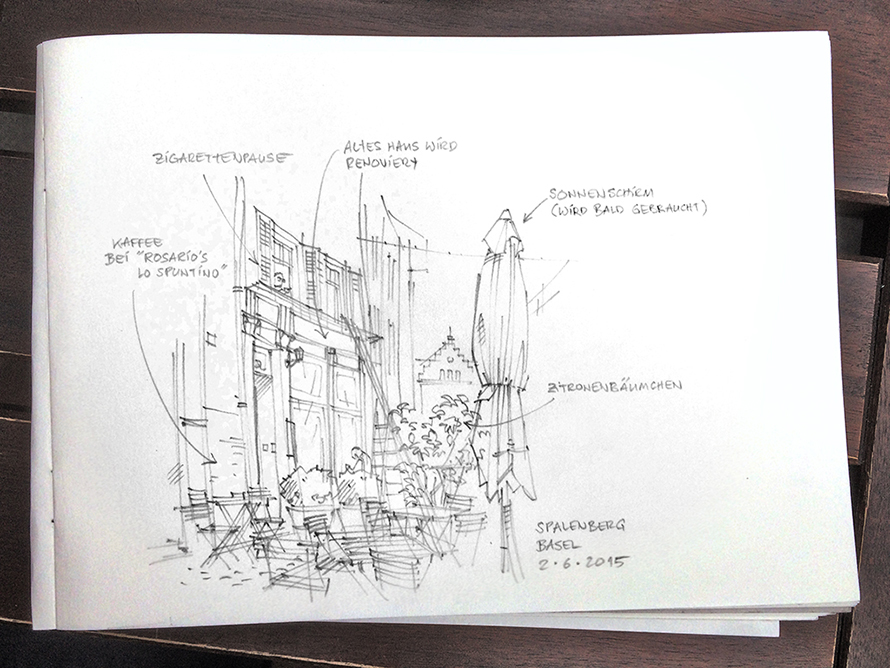 ZIGARETTENPAUSE
ALTES HAUS WIRD
RENOVIERT
SONNENSCHIRM
(WIRD BALD GEBRAUCHT)
KAFFEE
BEI "ROSARIO'S
LO SPUNTINO"
ZITRONENBÄUMCHEN
SPALENBERG
BASEL
2·6·2015